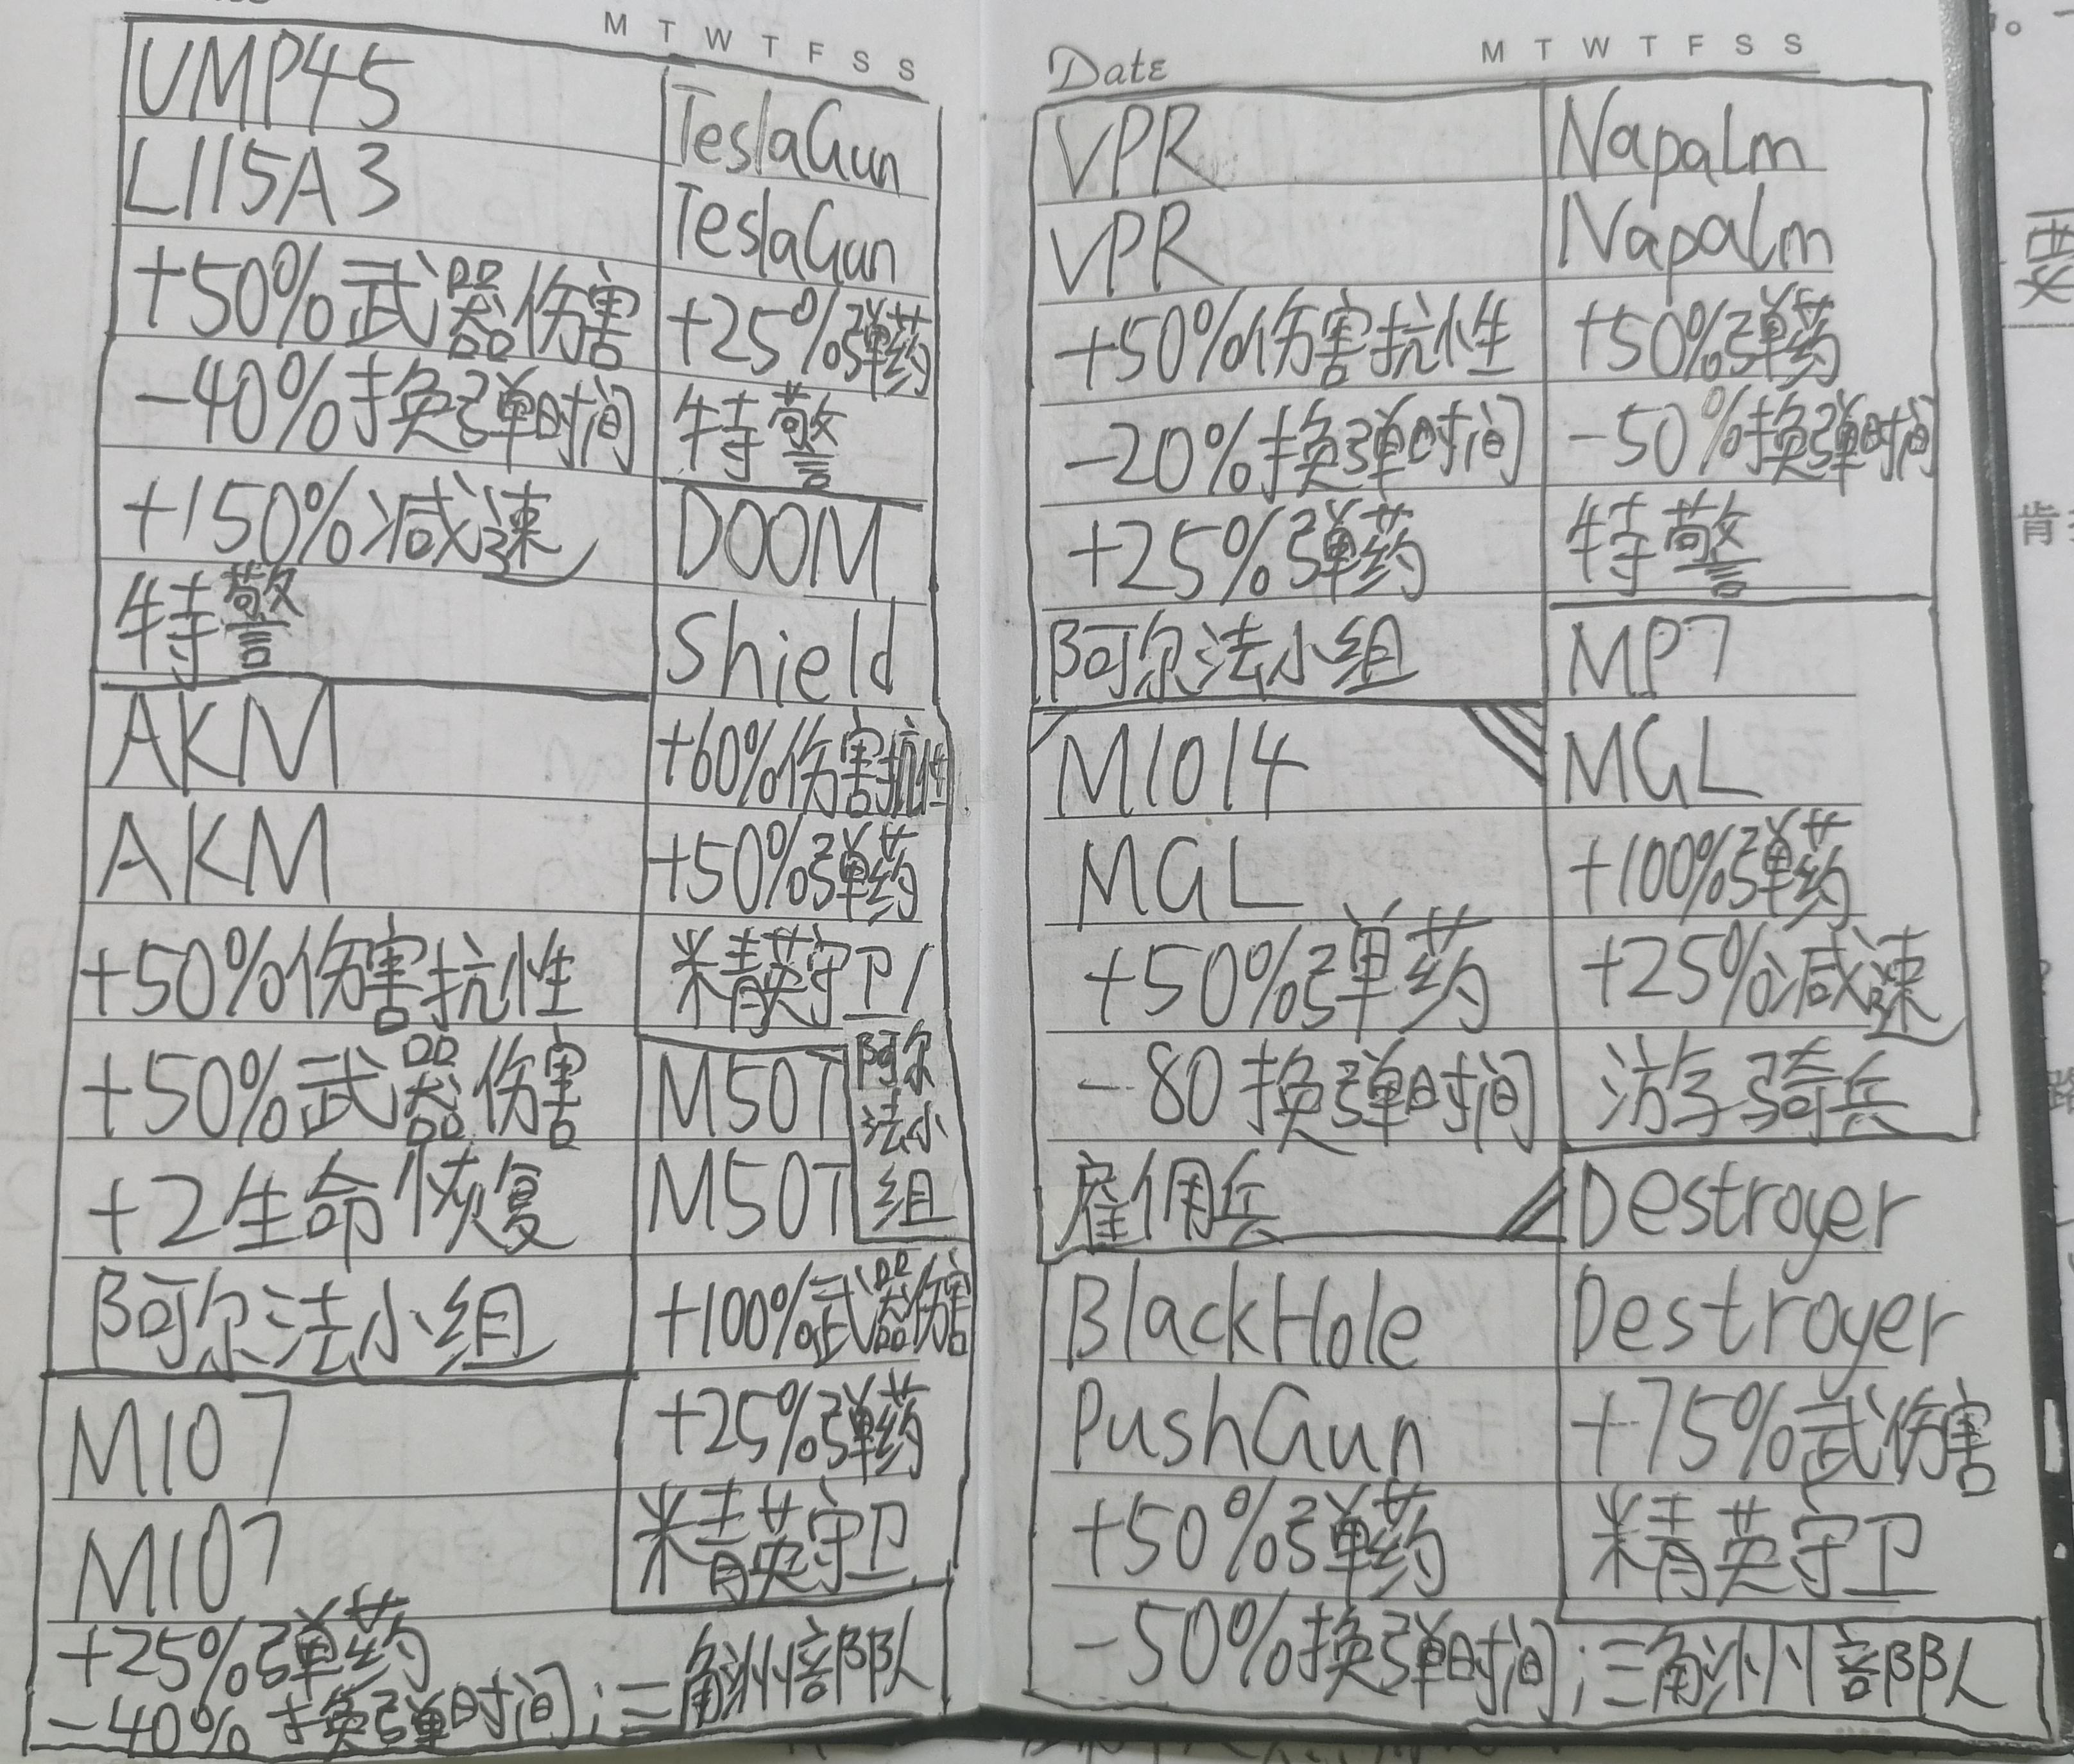 M T W T F S S
UMP45
L115A3
+50%武器伤害
-40%换弹时间
+150%减速
特警
AKM
AKM
+50%伤害抗性
+50%武器伤害
+2生命恢复
阿尔法小组
M107
M107
+25%弹药
-40%换弹时间;三角洲部队
TeslaGun
TeslaGun
+25%弹药
特警
DOOM
Shield
+60%伤害抗性
+50%弹药
精英守卫/
阿尔
法小
组
M50T
M50T
+100%武器伤害
+25%弹药
精英守卫
Date
M T W T F S S
VPR
VPR
+50%伤害抗性
-20%换弹时间
+25%弹药
阿尔法小组
M1014
MGL
+50%弹药
-80换弹时间
雇佣兵
BlackHole
PushGun
+50%弹药
-50%换弹时间;三角洲部队
Napalm
Napalm
+50%弹药
-50%换弹时间
特警
MP7
MGL
+100%弹药
+25%减速
游骑兵
Destroyer
Destroyer
+75%武伤害
精英守卫